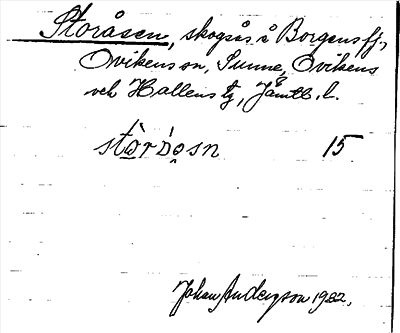 Storåsen, skogsås å Borgens fj.,
Ovikens sn, Sunne, Ovikens
och Hallens tg, Jämtl. l.
stòrósn 15
Johan Anderson 1922.